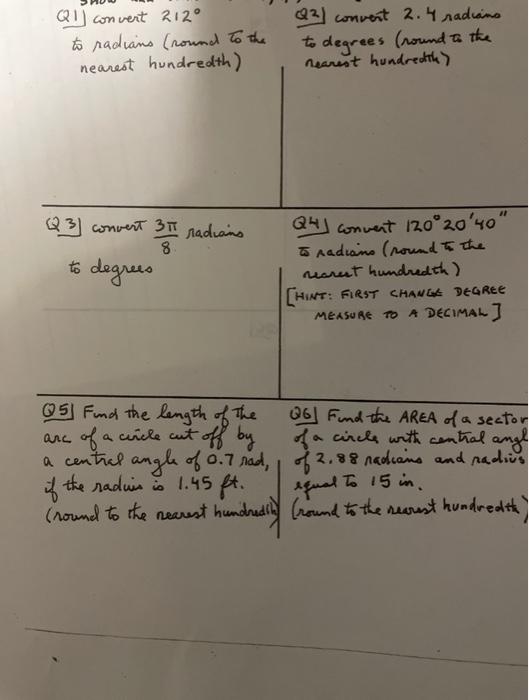 Q1] convert 212°
to radians (round to the
nearest hundredth)
Q2] convert 2.4 radians
to degrees (round to the
nearest hundredth)
Q3] convert 3π/8 radians
to degrees
Q4] convert 120°20'40"
to radians (round to the
nearest hundredth)
[HINT: FIRST CHANGE DEGREE
MEASURE TO A DECIMAL]
Q5] Find the length of the
arc of a circle cut off by
a central angle of 0.7 rad,
if the radius is 1.45 ft.
(round to the nearest hundredth)
Q6] Find the AREA of a sector
of a circle with central angl
of 2.88 radians and radius
equal to 15 in.
(round to the nearest hundredth)